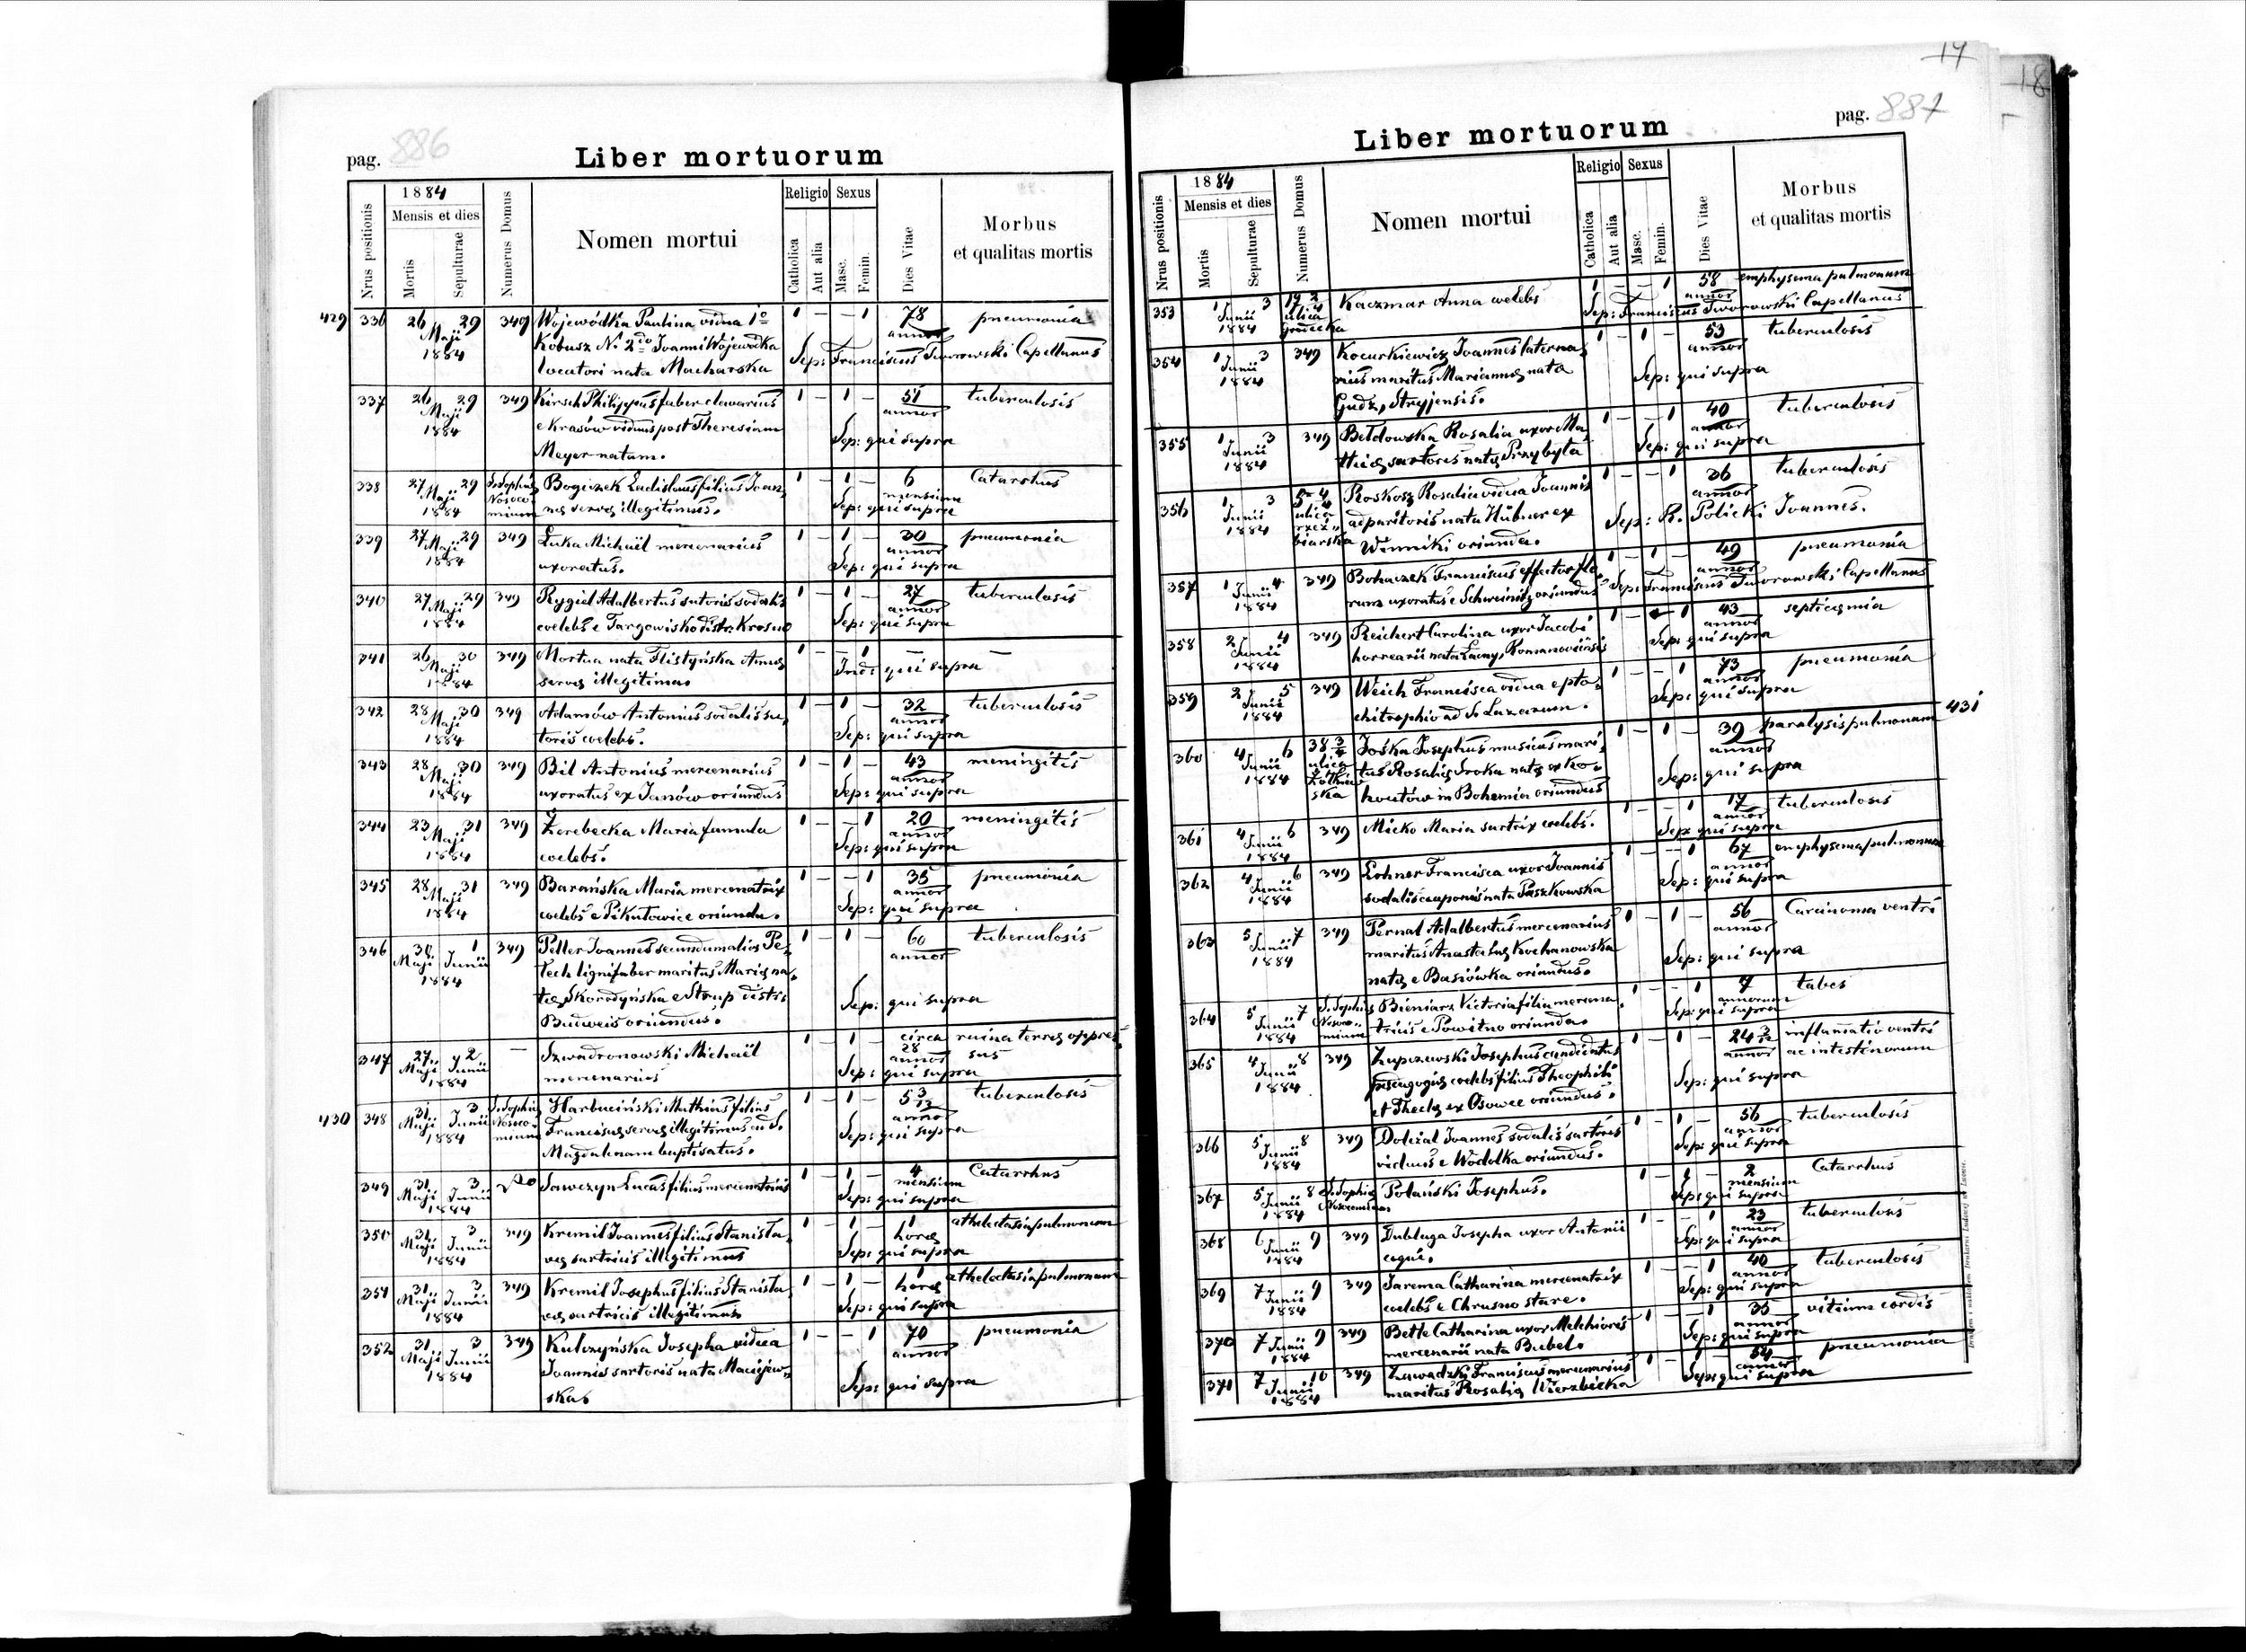 pag. 886
Liber mortuorum
Nrus positionis
1884
Mensis et dies
Mortis
Sepulturae
Numerus Domus
Nomen mortui
Religio
Catholica
Aut alia
Sexus
Masc.
Femin.
Dies Vitae
Morbus
et qualitas mortis
429 336 26 29 349 Wojewódka Paulina vidua 1º 1 – – 1 78 pneumonia
Maji Kobusz Nº 2do Joanni Wojewodka annor
1884 locatori nata Macharska Sep: Franciscus Tworowski Capellanus
337 26 29 349 Kirsch Philippus faber clavarius 1 – 1 – 51 tuberculosis
Maji e Krasów viduus post Theresiam annor
1884 Meyer natam. Sep: qui supra
338 27 29 S. Sophiæ Bogiczek Ladislaus filius Joan 1 – 1 – 6 Catarrhus
Maji Nosoco næ servæ illegitimus. mensium
1884 mium Sep: qui supra
339 27 29 349 Luka Michaël mercenarius 1 – 1 – 30 pneumonia
Maji uxoratus. annor
1884 Sep: qui supra
340 27 29 349 Rygiel Adalbertus sutoris sodalis 1 – 1 – 27 tuberculosis
Maji coelebs e Targowisko distr. Krosno annor
1884 Sep: qui supra
341 26 30 349 Mortua nata Flistyńska Annæ 1 – – 1 – –
Maji servæ illegitima. Ind: qui supra
1884
342 28 30 349 Adamów Antonius sodalis su 1 – 1 – 32 tuberculosis
Maji toris coelebs. annor
1884 Sep: qui supra
343 28 30 349 Bil Antonius mercenarius 1 – 1 – 43 meningitis
Maji uxoratus ex Janów oriundus annor
1884 Sep: qui supra
344 23 31 349 Zerebecka Maria famula 1 – – 1 20 meningitis
Maji coelebs. annor
1884 Sep: qui supra
345 28 31 349 Barańska Maria mercenatrix 1 – – 1 35 pneumonia
Maji coelebs e Pikułowice oriunda. annor
1884 Sep: qui supra
346 30 1 349 Peller Joannes secundum alios Pe 1 – 1 – 60 tuberculosis
Maji Junii tech lignifaber maritus Mariæ na annor
1884 tæ Skorodyńska e Strup distr.
Budweis oriundus. Sep: qui supra
347 27 2 – Szwadronowski Michaël 1 – 1 – circa ruina terræ oppres
Maji Junii mercenarius 28 annor sus
1884 Sep: qui supra
430 348 31 3 S. Sophiæ Harbuciński Mathias filius 1 – 1 – 5 3/12 tuberculosis
Maji Junii Nosoco Franciscæ servæ illegitimus ad S. annor
1884 mium Magdalenam baptisatus. Sep: qui supra
349 31 3 dto Sawczyn Lucas filius mercenatricis 1 – 1 – 4 Catarrhus
Maji Junii mensium
1884 Sep: qui supra
350 31 3 349 Kremil Joannes filius Stanisla 1 – 1 – 1 athelectasia pulmonum
Maji Junii væ sartricis illegitimus horæ
1884 Sep: qui supra
351 31 3 349 Kremil Josephus filius Stanisla 1 – 1 – 1 athelectasia pulmonum
Maji Junii væ sartricis illegitimus horæ
1884 Sep: qui supra
352 31 3 349 Kulczyńska Josepha vidua 1 – – 1 70 pneumonia
Maji Junii Joannis sartoris nata Maciejew annor
1884 ska. Sep: qui supra
17
18
pag. 887
Liber mortuorum
Nrus positionis
1884
Mensis et dies
Mortis
Sepulturae
Numerus Domus
Nomen mortui
Religio
Catholica
Aut alia
Sexus
Masc.
Femin.
Dies Vitae
Morbus
et qualitas mortis
353 1 3 19 2/4 Kaczmar Anna coelebs 1 – – 1 58 emphysema pulmonum
Junii ulica annor
1884 Gródecka Sep: Franciscus Tworowski Capellanus
354 1 3 349 Kocurkiewicz Joannes laterna 1 – 1 – 53 tuberculosis
Junii rius maritus Mariannæ nata annor
1884 Gudz, Stryjensis. Sep: qui supra
355 1 3 349 Bełdowska Rosalia uxor Ma 1 – – 1 40 tuberculosis
Junii thiæ sartoris natæ Przybyła annor
1884 Sep: qui supra
356 1 3 ulica Roskosz Rosalia vidua Joannis 1 – – 1 36 tuberculosis
Junii rzeź adparitoris nata Hübner ex annor
1884 biarska Winniki oriunda. Sep: R. Policki Joannes.
357 1 4 349 Bohaczek Franciscus effector flo 1 – 1 – 49 pneumonia
Junii rum uxoratus e Schweinitz oriundus annor
1884 Sep: Franciscus Tworowski Capellanus
358 2 4 349 Reichert Carolina uxor Jacobi 1 – – 1 43 septicæmia
Junii horrearii nata Lacny, Romanoviensis annor
1884 Sep: qui supra
359 2 5 349 Weich Francisca vidua e pto 1 – – 1 73 pneumonia
Junii chitrophio ad S. Lazarum. annor
1884 Sep: qui supra
431
360 4 6 38 3/4 Joska Josephus musicus mari 1 – 1 – 39 paralysis pulmonum
Junii ulica tus Rosaliæ Sroka natæ ex Ko annor
1884 Żółkiew ska houtów in Bohemia oriundus Sep: qui supra
361 4 6 349 Micko Maria sartrix coelebs. 1 – – 1 17 tuberculosis
Junii annor
1884 Sep: qui supra
362 4 6 349 Lohner Francisca uxor Joannis 1 – – 1 67 emphysema pulmonum
Junii sodalis cauponis nata Paszkowska annor
1884 Sep: qui supra
363 5 7 349 Pernal Adalbertus mercenarius 1 – 1 – 56 Carcinoma ventri
Junii maritus Anastasiæ Kochanowska annor
1884 natæ e Basiówka oriundus. Sep: qui supra
364 5 7 S. Sophiæ Bieniarz Victoria filia mercena 1 – – 1 7 tabes
Junii Nosoco tricis e Powitno oriunda. annorum
1884 mium Sep: qui supra
365 4 8 349 Zupczewski Josephus candidatus 1 – 1 – 24 3/12 inflamatio ventri
Junii pædagogiæ coelebs filius Theophili annor ac intestinorum
1884 et Theclæ ex Osowce oriundus. Sep: qui supra
366 5 8 349 Doliżal Joannes sodalis sartoris 1 – 1 – 56 tuberculosis
Junii viduus e Wodolka oriundus. annor
1884 Sep: qui supra
367 5 8 S. Sophiæ Polański Josephus. 1 – 1 – 2 Catarrhus
Junii Nosocomium mensium
1884 Sep: qui supra
368 6 9 349 Dubluga Josepha uxor Antonii 1 – – 1 23 tuberculosis
Junii annor
1884 Sep: qui supra
369 7 9 349 Jarema Catharina mercenatrix 1 – – 1 40 tuberculosis
Junii coelebs e Chrusno stare. annor
1884 Sep: qui supra
370 7 9 349 Betle Catharina uxor Melchioris 1 – – 1 35 vitium cordis
Junii mercenarii nata Bubel. annor
1884 Sep: qui supra
371 7 10 349 Zawadzki Franciscus mercenarius 1 – 1 – 54 pneumonia
Junii maritus Rosaliæ Wierzbicka annor
1884 Sep: qui supra